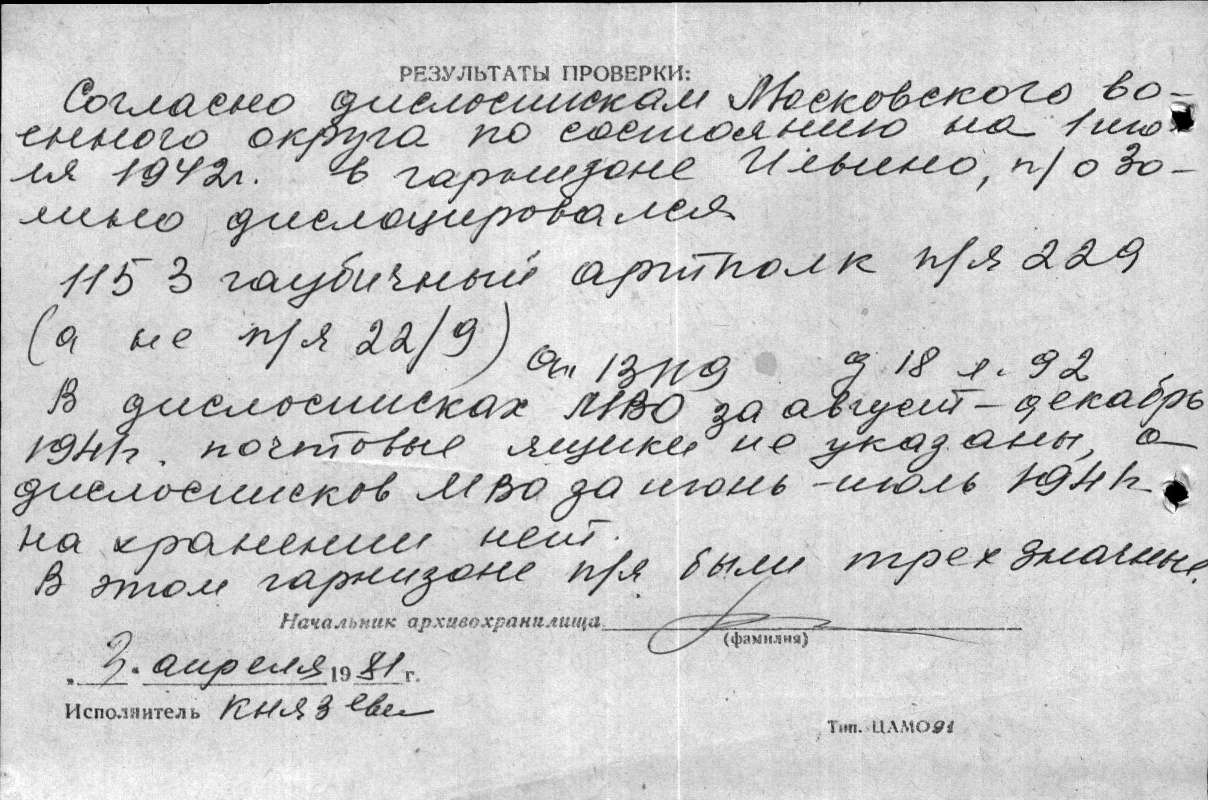 РЕЗУЛЬТАТЫ ПРОВЕРКИ:
Согласно дислоспискам Московского во-
енного округа по состоянию на 1 ию-
ля 1942г. в гарнизоне Ильино, п/о Зо-
лино дислоцировался
1153 гаубичный артполк п/я 229
(а не п/я 22/9)
оп 13119 д 18 л. 92
В дислосписках МВО за август-декабрь
1941г. почтовые ящики не указаны, а
дислосписков МВО за июнь-июль 1941г.
на хранении нет.
В этом гарнизоне п/я были трехзначные.
Начальник архивохранилища
(фамилия)
"3" апреля 1981 г.
Исполнитель Князева
Тип. ЦАМО 91